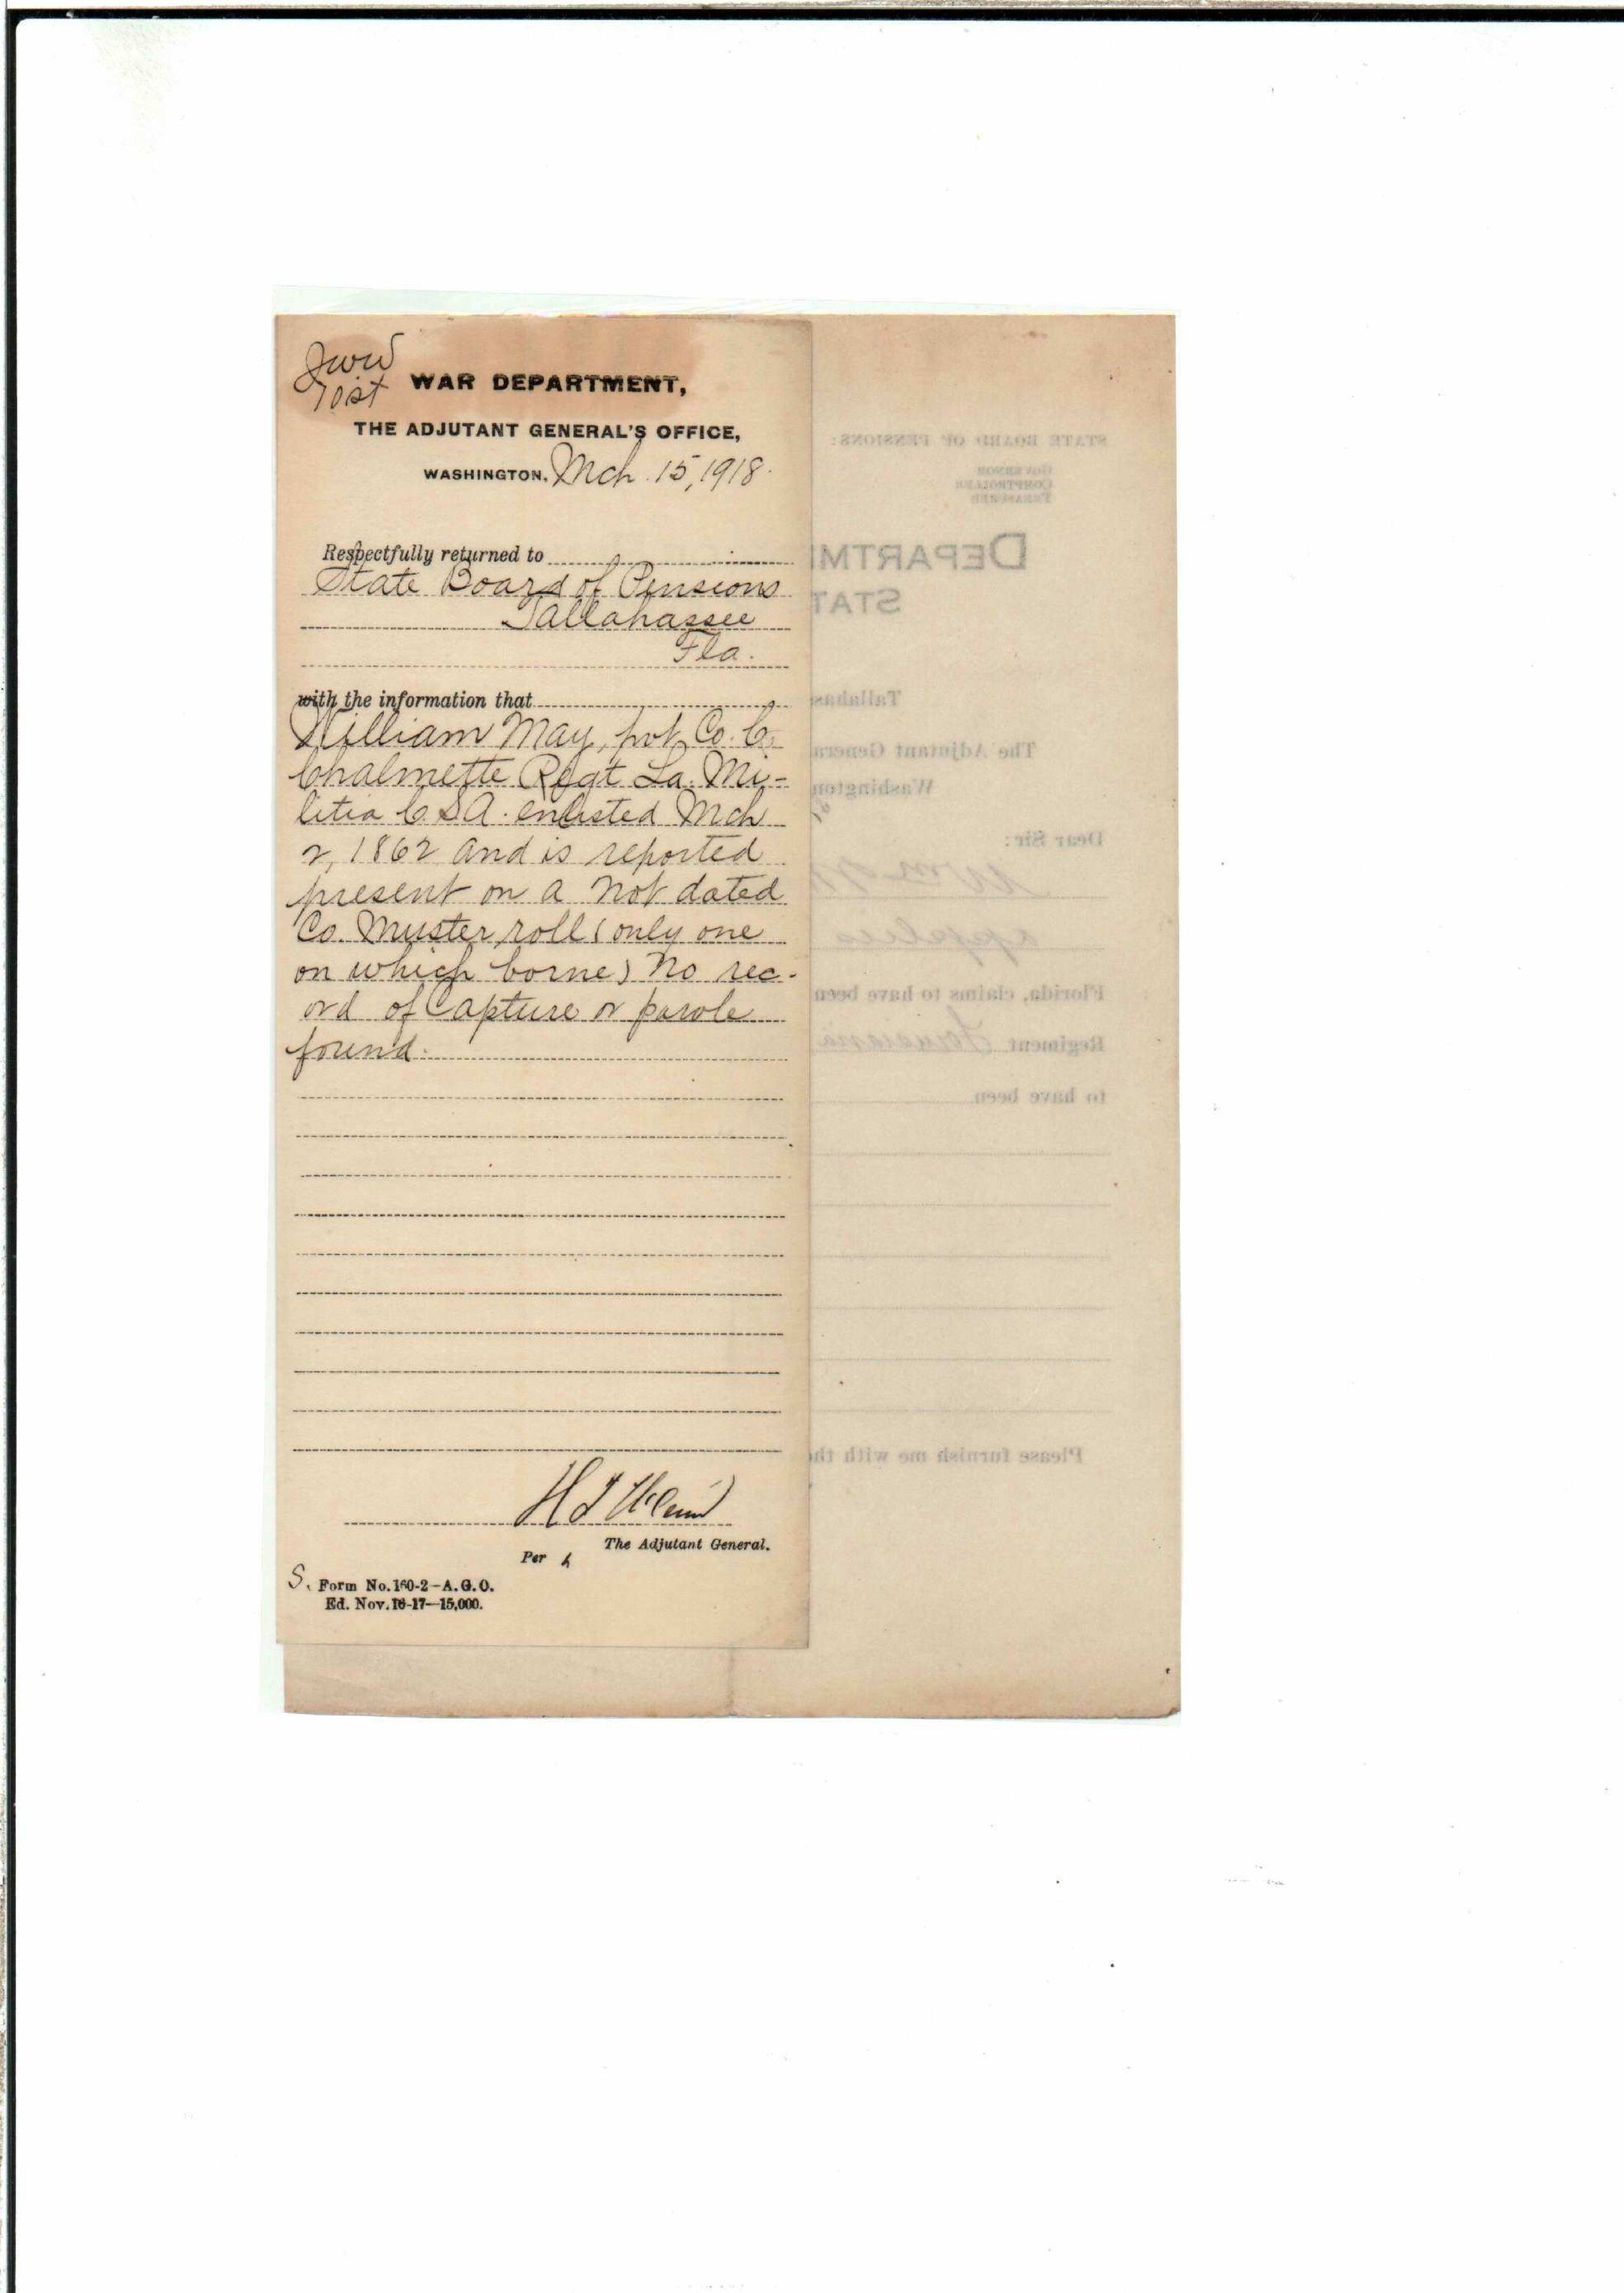 WAR DEPARTMENT,
THE ADJUTANT GENERAL'S OFFICE,
WASHINGTON, Mch. 15, 1918.
Respectfully returned to
State Board of Pensions
Tallahassee
Fla.
with the information that
William May, pvt Co. C.
Chalmette Regt La. Mi-
litia C.S.A. enlisted Mch
2, 1862 and is reported
present on a not dated
Co. Muster roll (only one
on which borne) No rec-
ord of Capture or parole
found.
The Adjutant General.
Per h
S. Form No. 160-2-A.G.O.
Ed. Nov. 16-17-15,000.
STATE BOARD OF PENSIONS:
GOVERNOR
COMPTROLLER
TREASURER
DEPARTM
STAT
Tallahas
The Adjutant Genera
Washington
Dear Sir:
Florida, claims to have been
Regiment Louisiana
to have been
Please furnish me with the